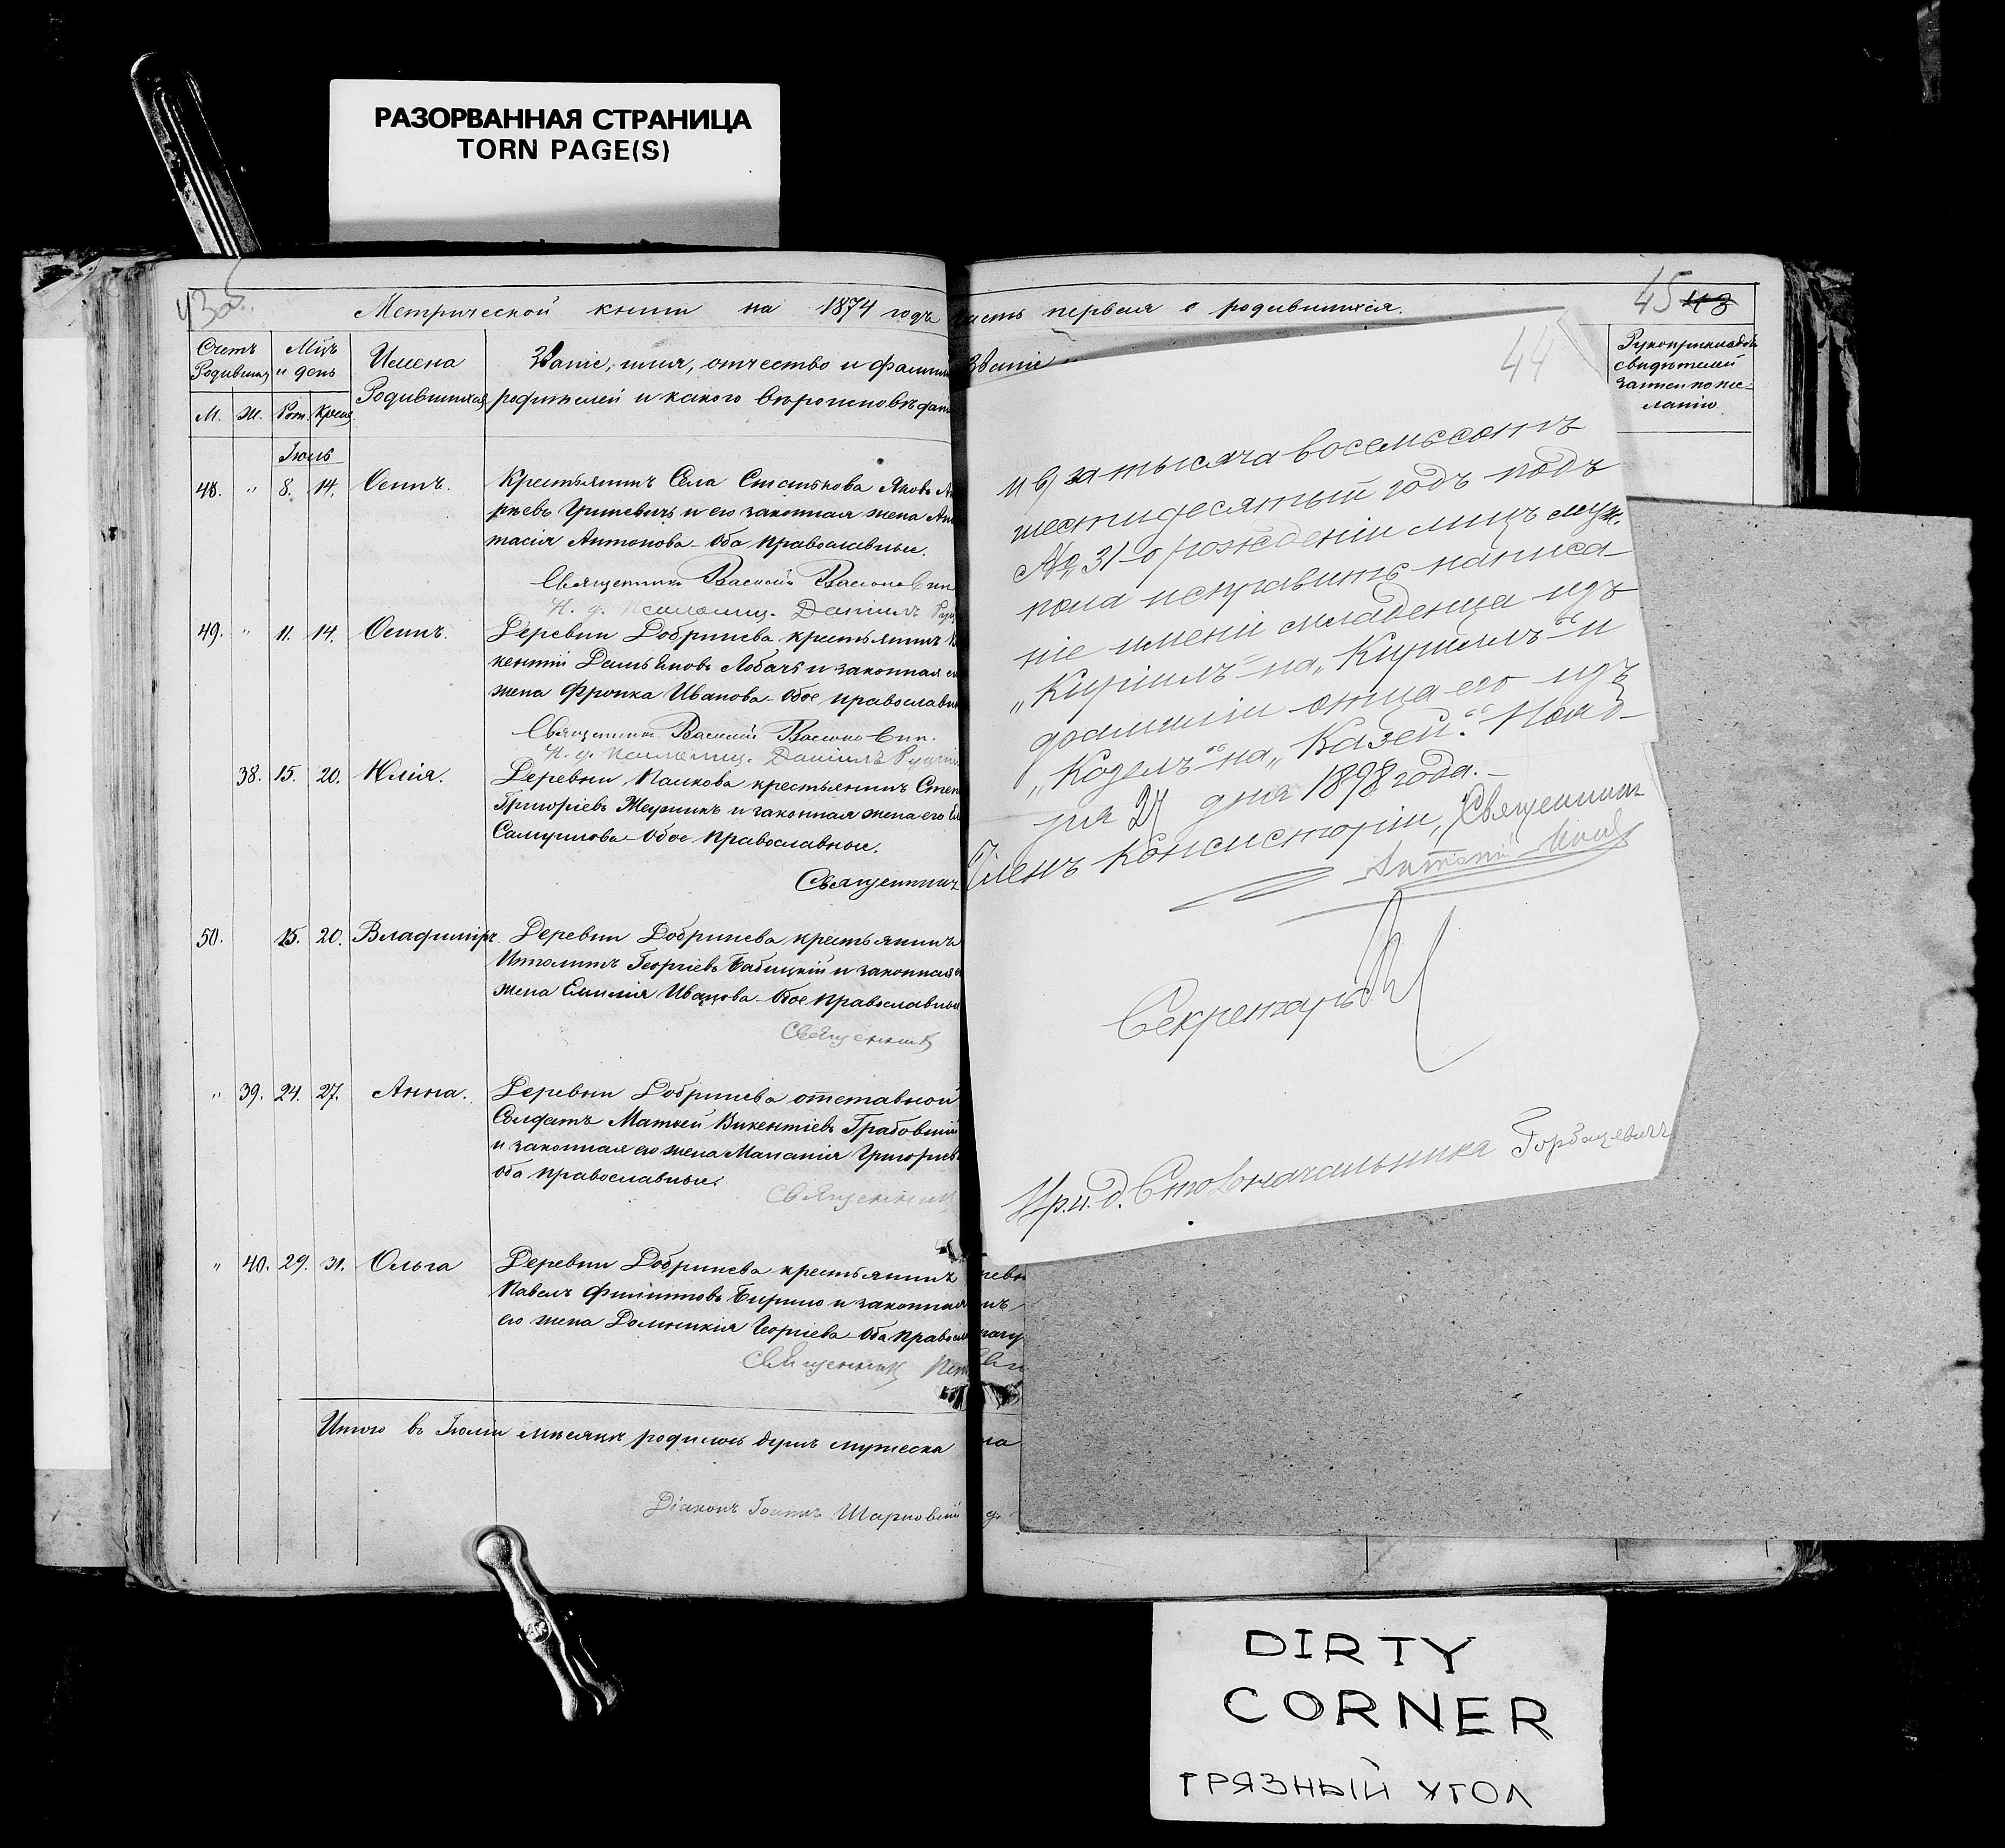 РАЗОРВАННАЯ СТРАНИЦА
TORN PAGE(S)
43об.
Метрической книги на 1874 годъ
Счетъ Родивших
Мцъ и день
Имена Родившихся
Званіе, имя, отчество и фамилі
родителей и какого вѣроисповѣдані
М. Ж. Рож. Крещ.
Іюль
48. " 8. 14. Осипъ. Крестьянинъ Села Станькова Яковъ Ан
рѣевъ Гриневичъ и его законная жена Ана
тасія Антонова - Оба православные.
Священникъ Василій
И. д. Псаломщ. Даніилъ
49. " 11. 14. Осипъ. Деревни Добринева крестьянинъ
кентій Демьяновъ Лобачъ и законная е
жена Фронка Иванова - Обое православн
Священникъ Василій
И. д. Псаломщ. Даніилъ
38. 15. 20. Юлія. Деревни Палкова крестьянинъ Степ
Григоріевъ и законная жена его
Самуилова - Обое Православные.
Священникъ
50. 15. 20. Владиміръ Деревни Добринева крестьянинъ
Ипполитъ Георгіевъ Бабицкій и законная е
жена Емилія Иванова - Обое Православные
Священникъ
" 39. 24. 27. Анна. Деревни Добринева отставной
Солдатъ Матвей Викентіевъ Грабовскій
и законная его жена Маланія Григорьев
Оба православные.
Священник
" 40. 29. 31. Ольга Деревни Добринева крестьянинъ
Павелъ Филиповъ Бирило и законная
его жена Домникія Георгіева - Оба Правосл
Священникъ
Итого въ Іюлѣ мѣсяцѣ родилось душъ мужеска
Діаконъ Іоаннъ Шарковскій
асть первая о родившихся.
45 43
Званіе
Рукоприкладств
свидѣтелей
записи по же-
ланію
44
и за тысяча восемьсотъ
шестидесятый годъ подъ
№ 31 о рожденіи лицъ муж.
пола исправить написа-
ніе имени младенца изъ
„Киріилъ" на „Кириллъ" и
фамиліи отца его изъ
„Козелъ" на „Казей". Нояб-
ря 27 дня 1898 года.
Членъ Консисторіи, Священникъ
Антоній
Секретарь
Пр. и. д. Столоначальника Горбацевичъ
DIRTY
CORNER
ГРЯЗНЫЙ УГОЛ